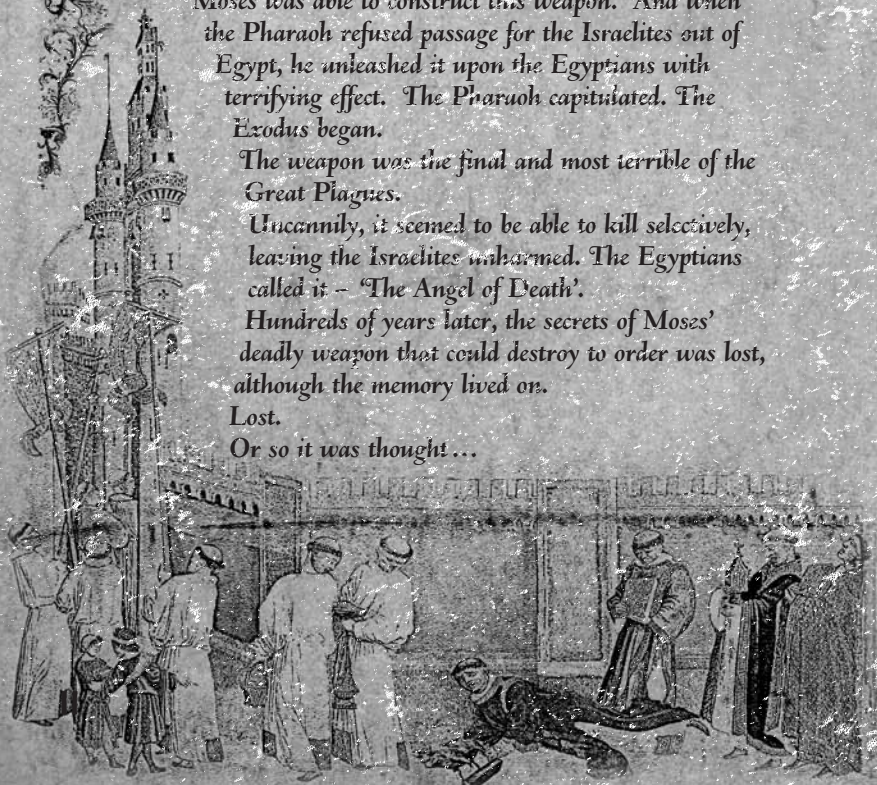 Moses was able to construct this weapon. And when
the Pharaoh refused passage for the Israelites out of
Egypt, he unleashed it upon the Egyptians with
terrifying effect. The Pharaoh capitulated. The
Exodus began.
The weapon was the final and most terrible of the
Great Plagues.
Uncannily, it seemed to be able to kill selectively,
leaving the Israelites unharmed. The Egyptians
called it – ‘The Angel of Death’.
Hundreds of years later, the secrets of Moses’
deadly weapon that could destroy to order was lost,
although the memory lived on.
Lost.
Or so it was thought…